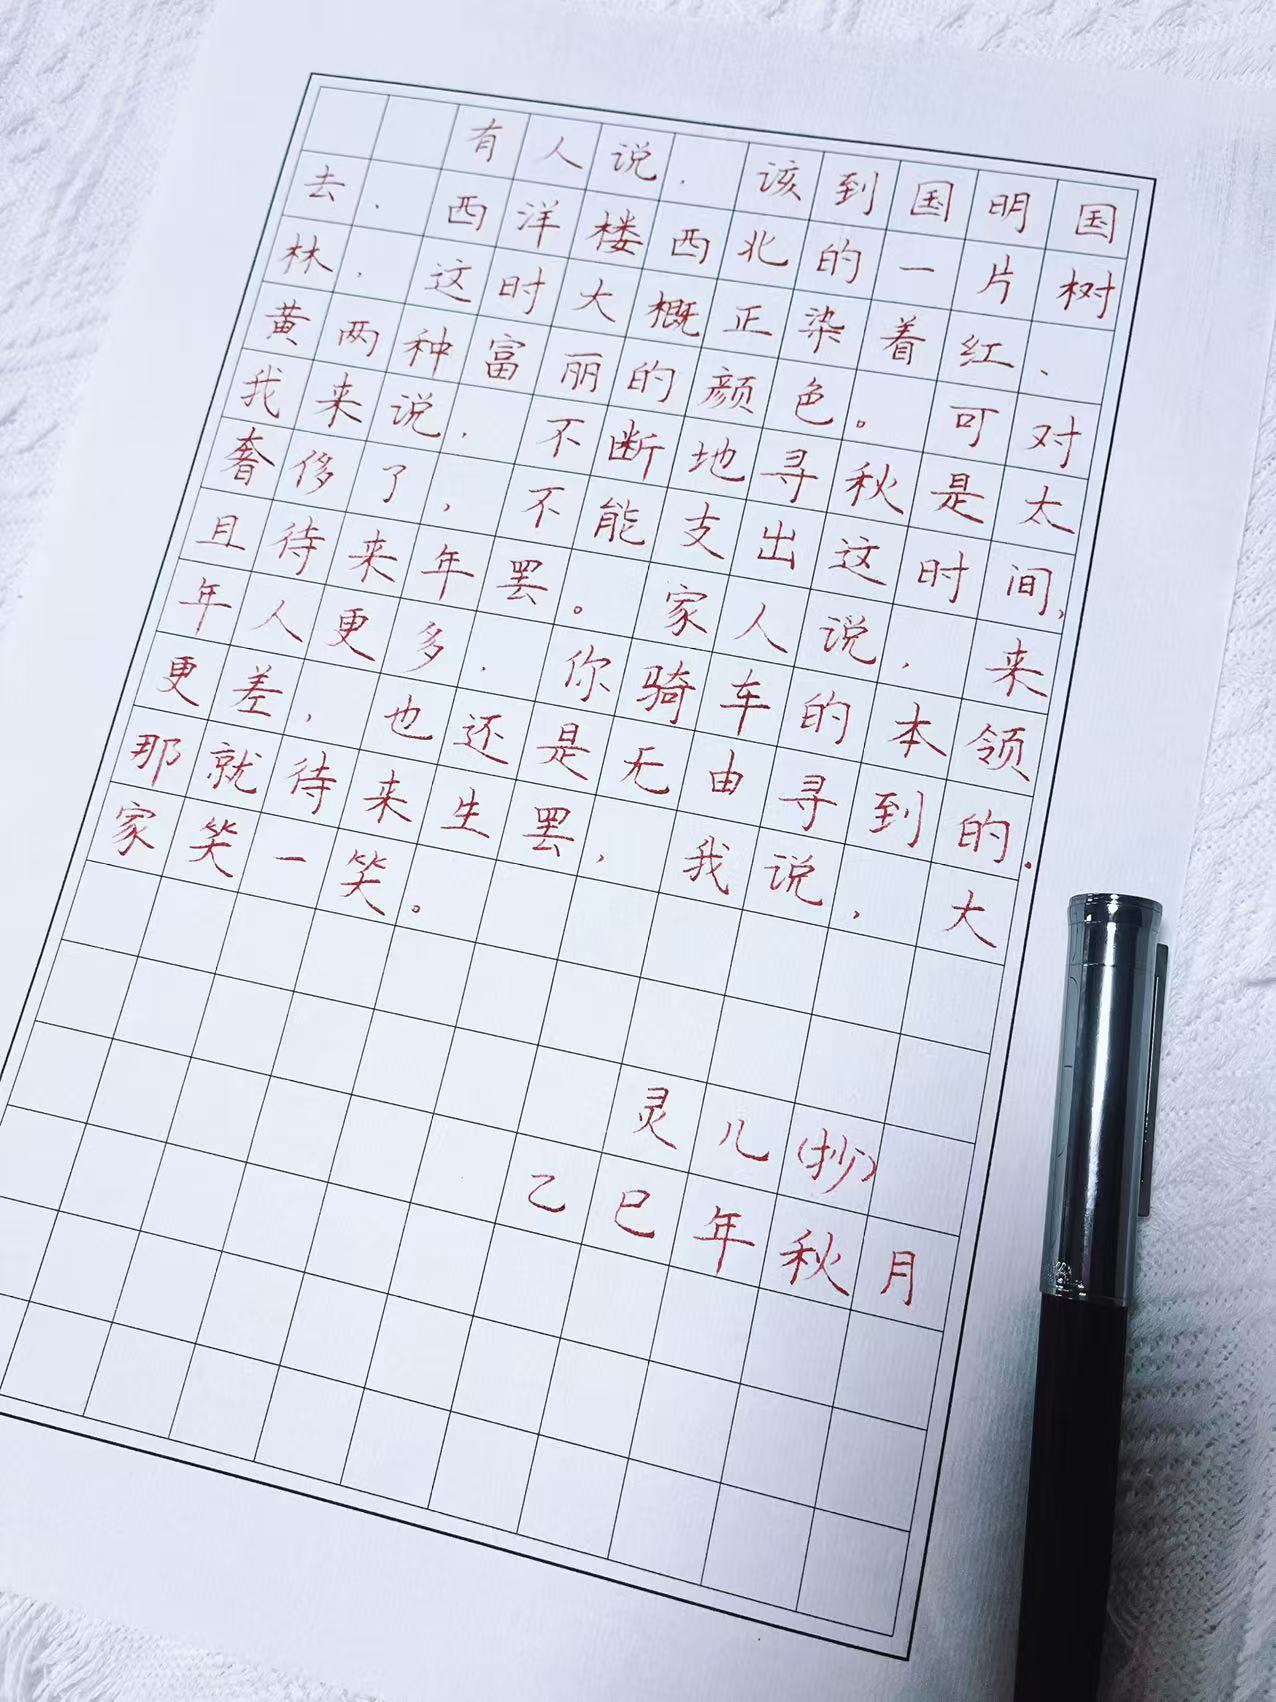 有人说，该到国明国
去，西洋楼西北的一片树
林，这时大概正染着红、
黄两种富丽的颜色。可对
我来说，不断地寻秋是太
奢侈了，不能支出这时间，
且待来年罢。家人说，来
年人更多，你骑车的本领
更差，也还是无由寻到的。
那就待来生罢，我说，大
家笑一笑。
灵儿(抄)
乙巳年秋月